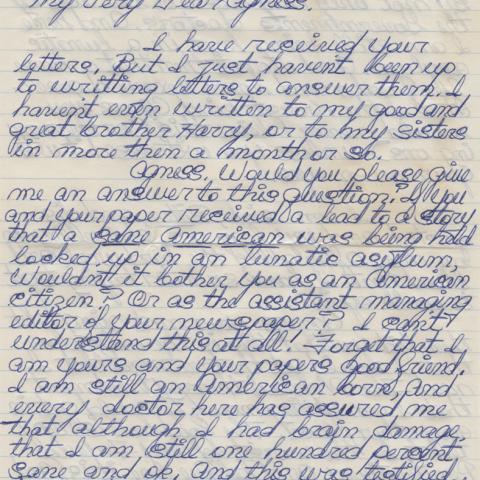 My very Dear Agness.
I have received your
letters, But I just havent been up
to writting letters to answer them. I
havent even written to my good and
great brother Harry, or to my sisters
in more then a month or so.
Agness, Would you please give
me an answer to this question? If you
and your paper received a lead to a story
that a sane American was being held
locked up in an lunatic asylum,
Wouldnt it bother you as an American
citizen? Or as the assistant managing
editor of your newspaper? I can't
understand this at all! Forget that I
am yours and your papers good friend.
I am still an American born, And
every doctor here has assured me
that although I had brain damage,
that I am still one hundred percent
sane and ok. And this was testified